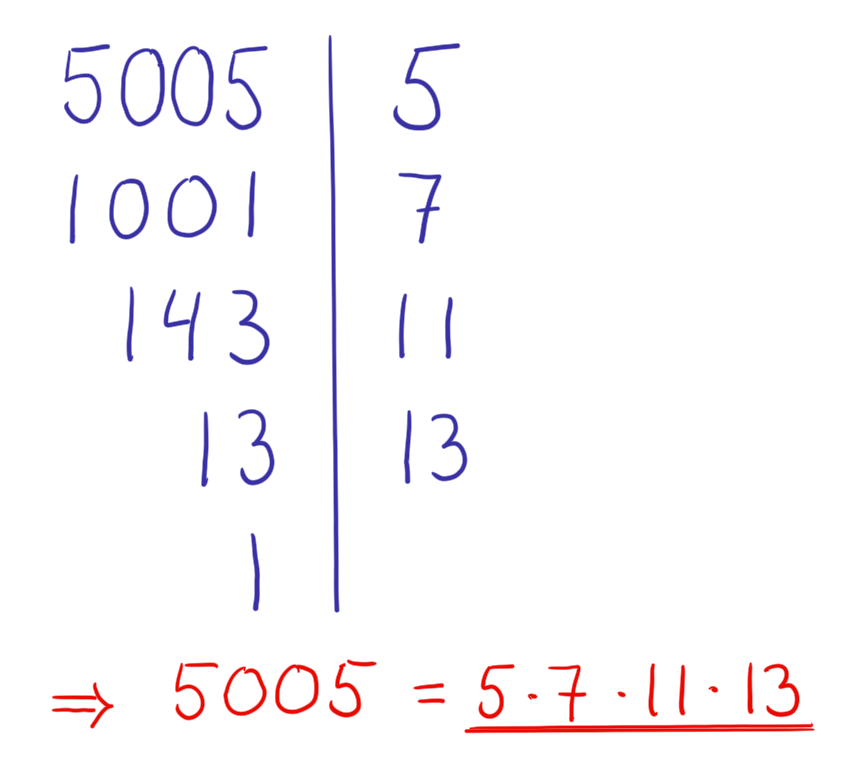 5005 | 5
1001 | 7
143 | 11
13 | 13
1 |
⇒ 5005 = 5·7·11·13